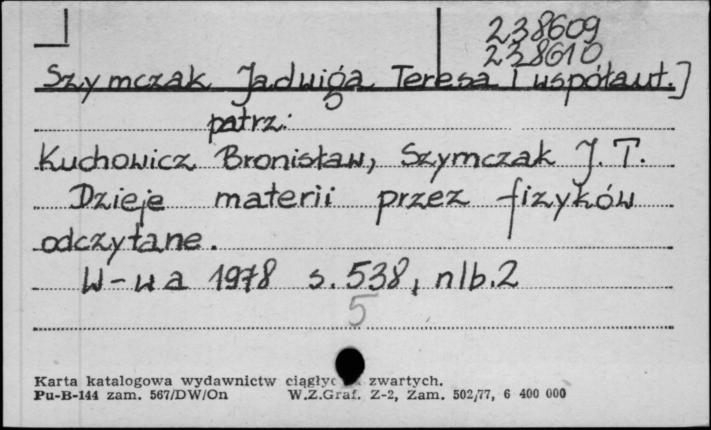 238609
238610
Szymczak Jadwiga Teresa [współaut.]
patrz:
Kuchowicz Bronisław, Szymczak J. T.
Dzieje materii przez fizyków
odczytane.
W-wa 1978 s. 538, nlb. 2
5
Karta katalogowa wydawnictw zwartych.
Pu-B-144 zam. 567/DW/On W.Z.Graf. Z-2, Zam. 502/77, 6 400 000